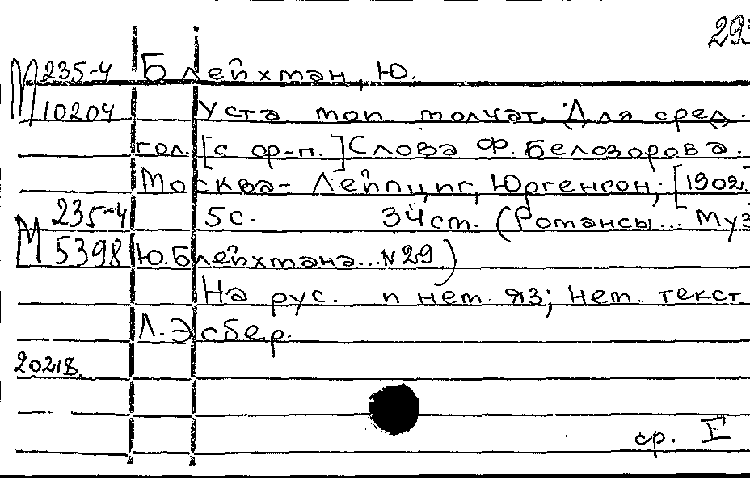 293
М 235-4 Блейхман, Ю.
10204 Уста мои молчат. Для сред.
гол. [с ф-п.] Слова Ф. Белозорова.
Москва - Лейпциг, Юргенсон, [1902.
М 235-4 5с. 34см. (Романсы... Муз
5398 Ю.Блейхмана... №29)
На рус. и нем. яз; нем. текст
Л. Эсбер.
ср. I